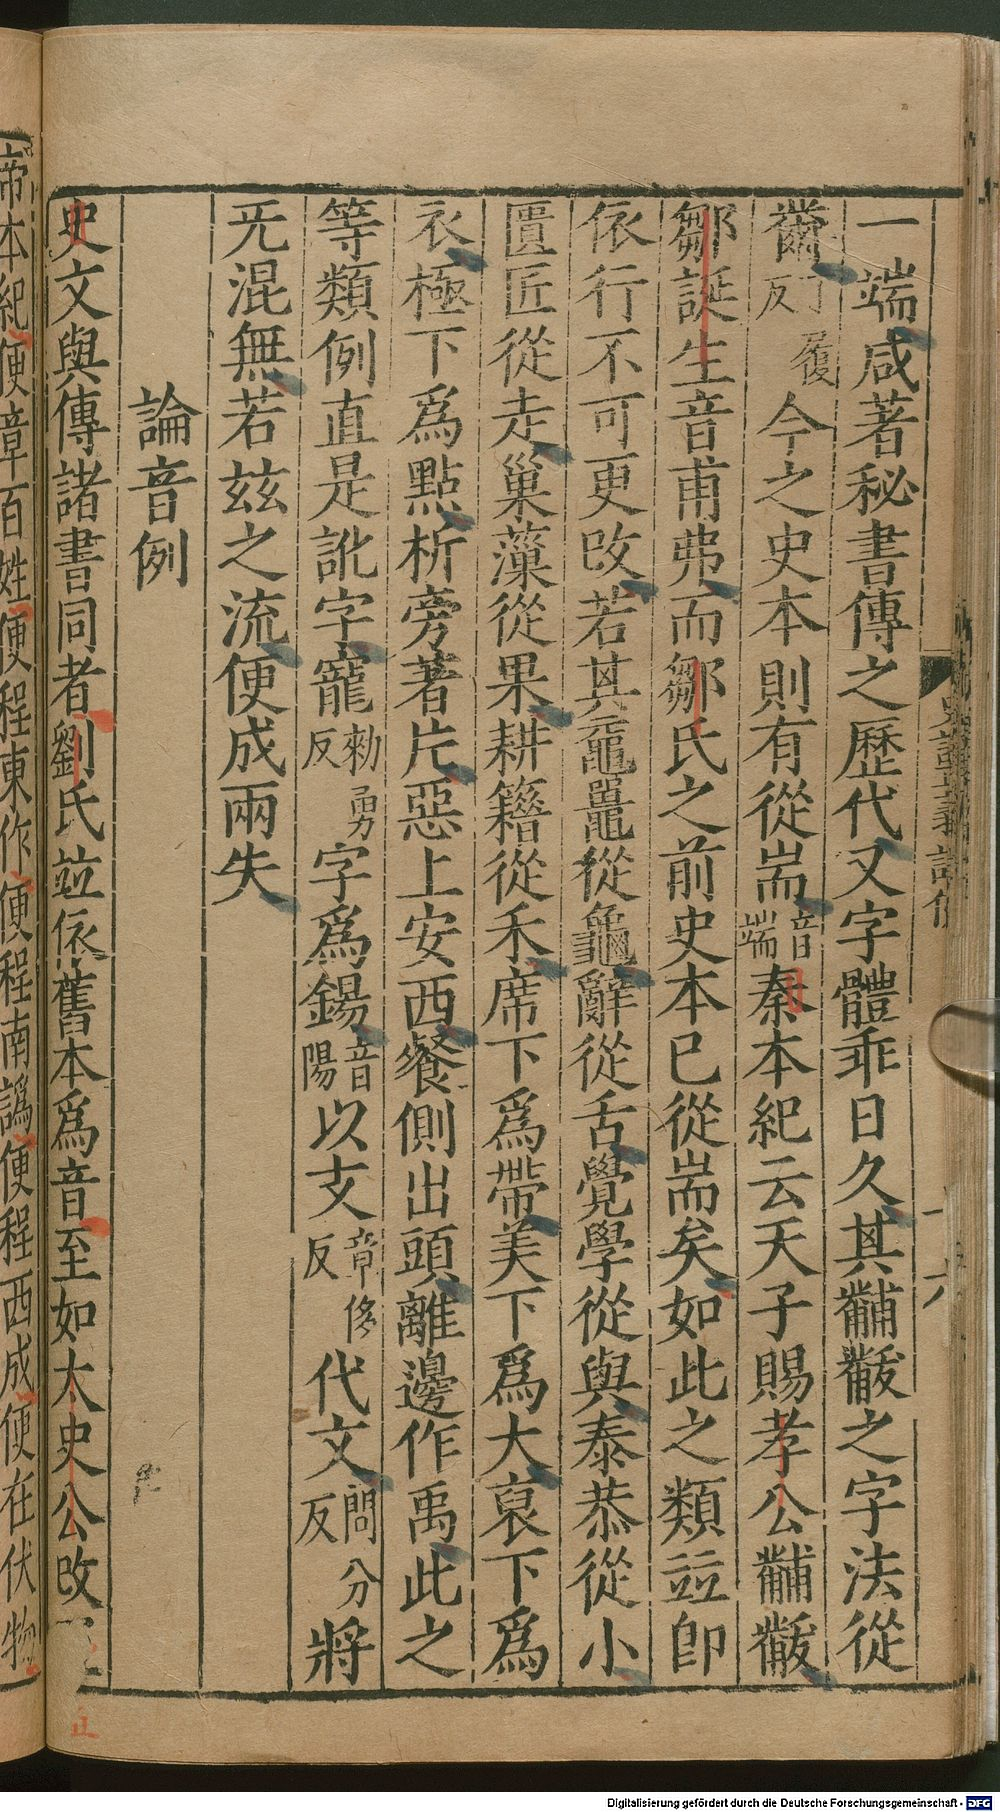 一端咸著秘書傳之歷代又字體乖日久其黼黻之字法從
黹丁履反今之史本則有從耑音端秦本紀云天子賜孝公黼黻
鄒誕生音甫弗而鄒氏之前史本已從耑矣如此之類竝即
依行不可更改若其黿鼉從龜辭從舌覺學從與泰恭從小
匱匠從走巢藻從果耕籍從禾席下爲帶美下爲大裒下爲
衣極下爲點析旁著片惡上安西餐側出頭離邊作禹此之
等類例直是訛字寵勑勇反字爲錫音陽以支章移反代文問分反將
旡混無若茲之流便成兩失
論音例
史文與傳諸書同者劉氏竝依舊本爲音至如太史公改
帝本紀便章百姓便程東作便程南譌便程西成便在伏物
Digitalisierung gefördert durch die Deutsche Forschungsgemeinschaft - DFG